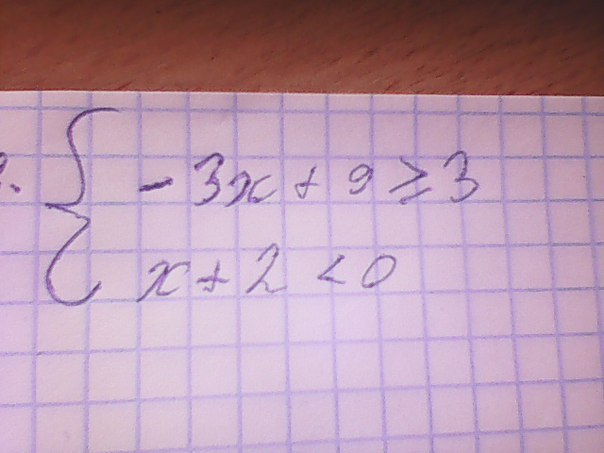 - 3x + 9 ≥ 3
x + 2 < 0